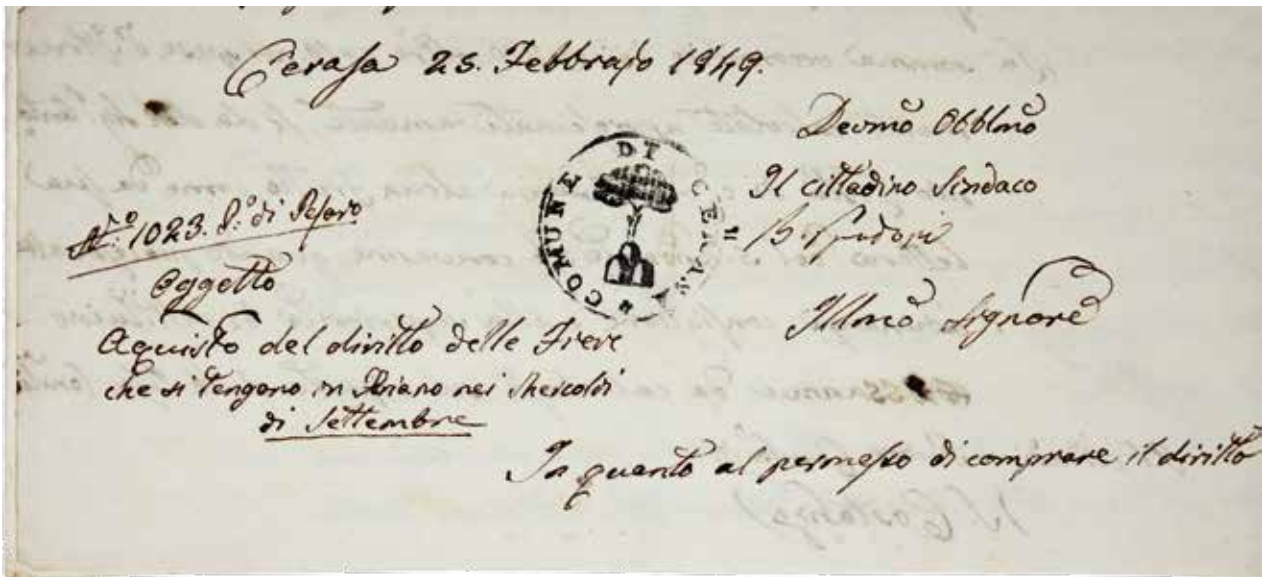 Cerasa 25. Febbrajo 1849.
Devmo Obblmo
Il cittadino Sindaco
COMUNE DI CERASA
N.º 1023. P.º di Pesaro
Oggetto
Illmo Signore
Aquisto del diritto delle Fiere
che si tengono in Piano nei Mercoldi
di Settembre
In quanto al permesso di comprare il diritto